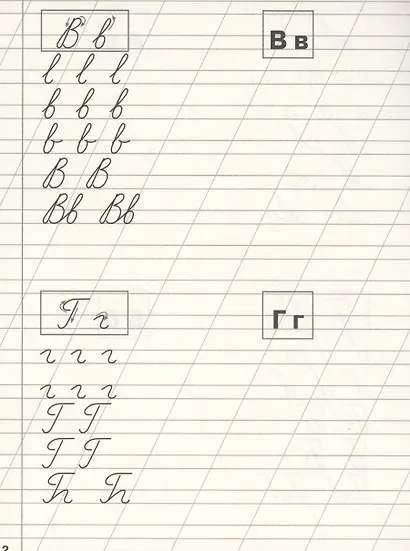 В в В в
в в в
в в в
В В
Вв Вв
Г г Г г
г г г
г г г
Г Г
Г Г
Гг Гг